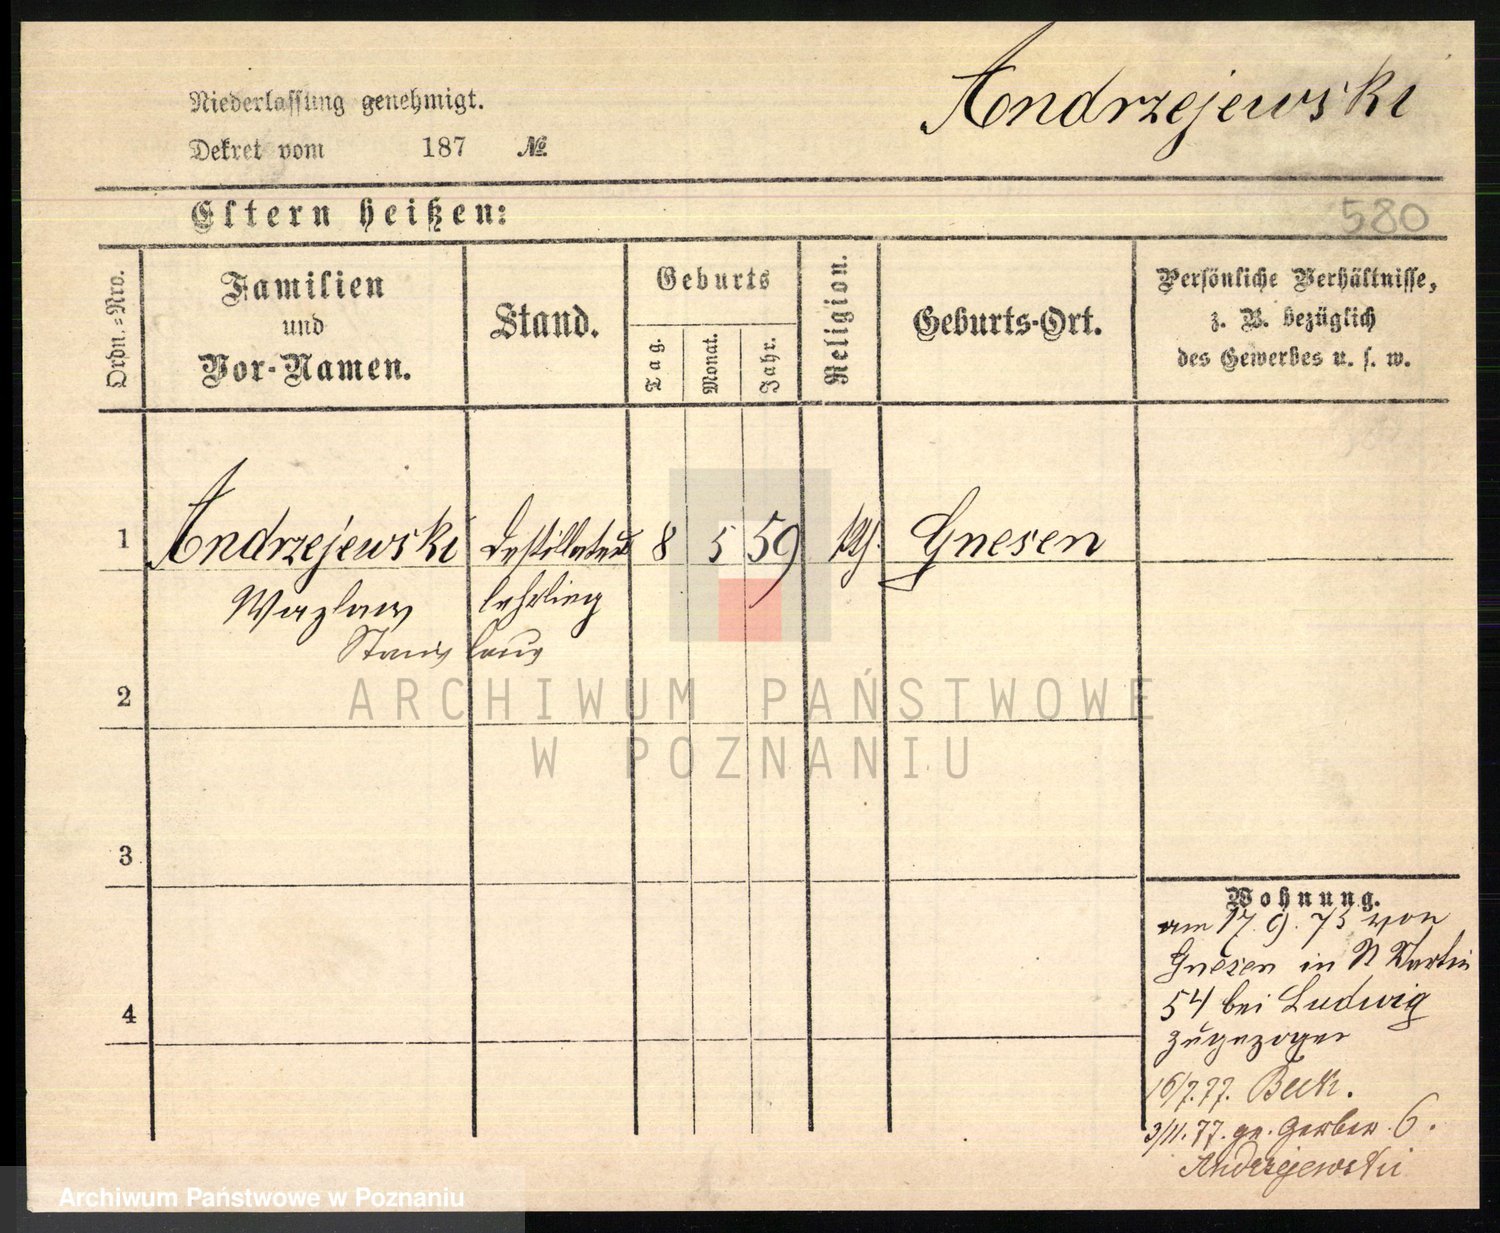 Andrzejewski
Niederlassung genehmigt.
Dekret vom 187 №
580
Eltern heißen:
Ordn.-Nro.
Familien
und
Vor-Namen.
Stand.
Geburts
Tag.
Monat.
Jahr.
Religion.
Geburts-Ort.
Persönliche Verhältnisse,
z. B. bezüglich
des Gewerbes u. s. w.
1 Andrzejewski Destillateur 8 5 59 Gnesen
Wazlaw lehrling
Stanislaus
2
3
4
Wohnung.
am 17. 9. 75 von
Gnesen in St Martin
54 bei Ludwig
zugezogen
16/7. 77. Beek.
3/11. 77. gr. Gerber. 6.
Andrzejewski
ARCHIWUM PAŃSTWOWE
W POZNANIU
Archiwum Państwowe w Poznaniu